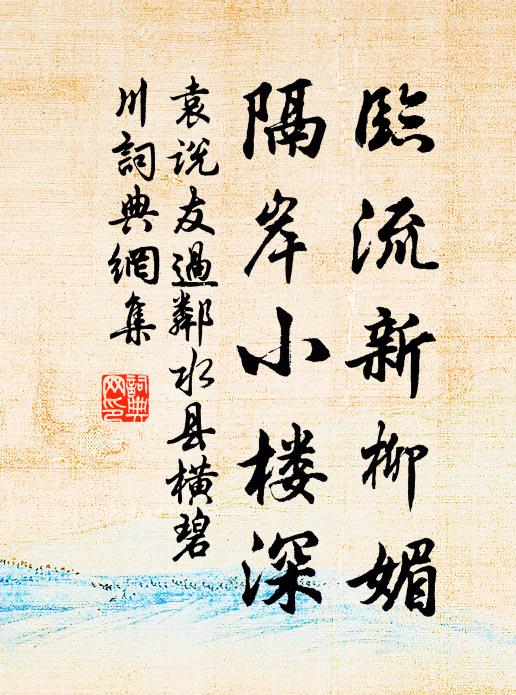 臨流新柳媚
隔岸小楼深
袁説友過鄰水县橫碧
川詞典網集
詞典
网印